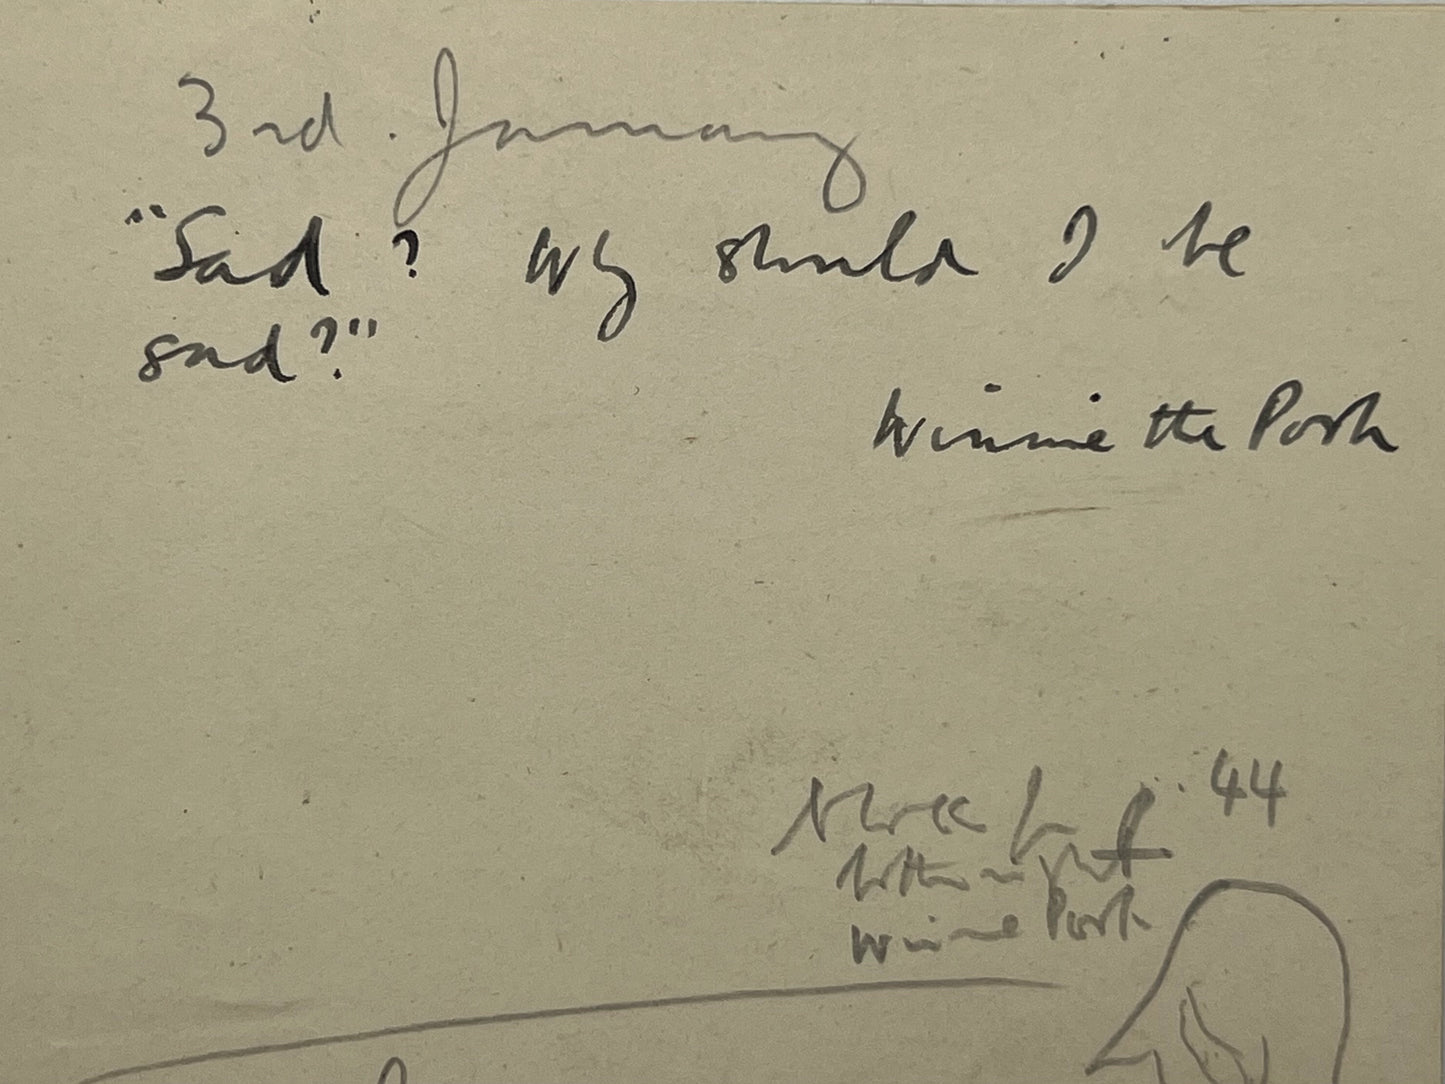 3rd. January
"Sad? Why should I be
sad?"
Winnie the Pooh
'44
bottom right
Winnie Pooh